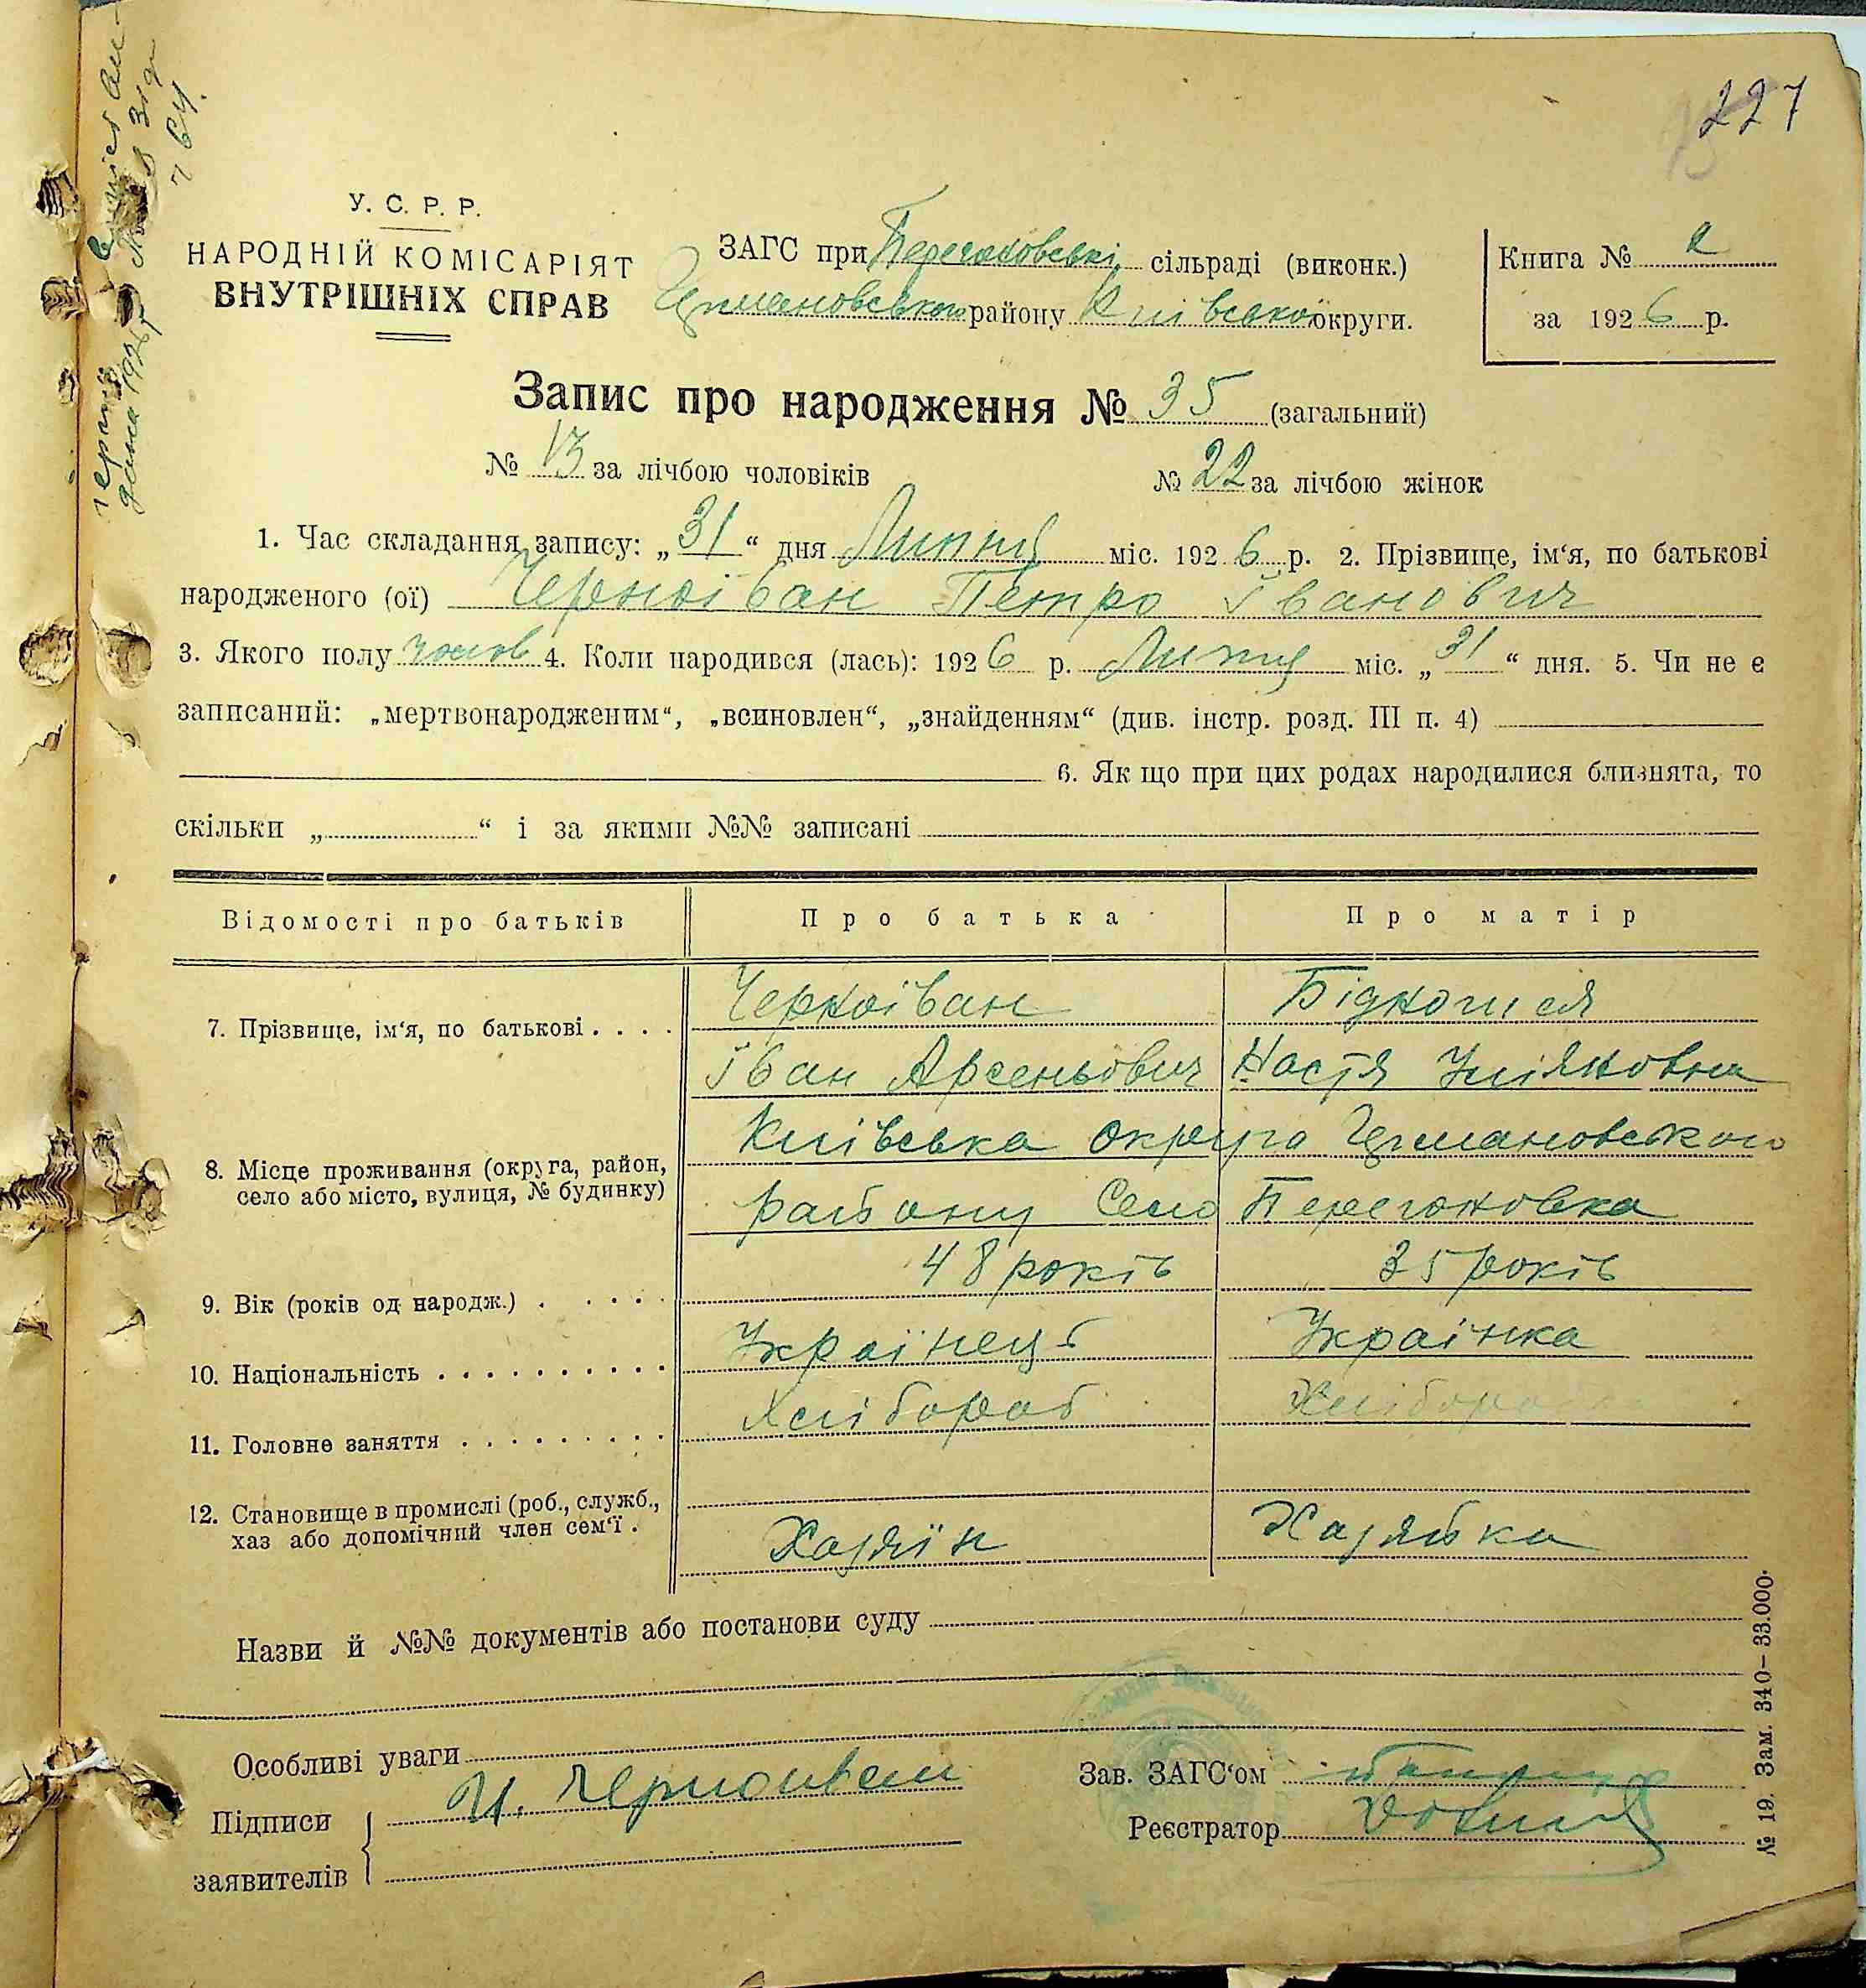 227
У. С. Р. Р.
НАРОДНІЙ КОМІСАРІЯТ
ВНУТРІШНІХ СПРАВ
ЗАГС при Перегоновські сільраді (виконк.)
Германовського району Київської округи.
Книга № 2
за 1926 р.
Запис про народження № 35 (загальний)
№ 13 за лічбою чоловіків № 22 за лічбою жінок
1. Час складання запису: „31“ дня Липця міс. 1926 р. 2. Прізвище, ім‘я, по батькові
народженого (ої) Черноіван Петро Іванович
3. Якого полу чолов 4. Коли народився (лась): 1926 р. Липця міс. „31“ дня. 5. Чи не є
записаний: „мертвонародженим“, „всиновлен“, „знайденням“ (див. інстр. розд. III п. 4)
6. Як що при цих родах народилися близнята, то
скільки „ “ і за якими №№ записані
Відомості про батьків Про батька Про матір
7. Прізвище, ім‘я, по батькові . . . . Черноіван
Іван Арсеньович Настя
8. Місце проживання (округа, район,
село або місто, вулиця, № будинку)
Київська округа Германовського
району Село Перегоновка
9. Вік (років од народж.) . . . . . 48 років 35 років
10. Національність . . . . . . . . . . Українець Українка
11. Головне заняття . . . . . . . . . Хлібороб
12. Становище в промислі (роб., служб.,
хаз або допомічний член сем‘ї .
Хазяїн Хазяйка
Назви й №№ документів або постанови суду
Особливі уваги
Підписи
заявителів
И. Черноиван
Зав. ЗАГС‘ом
Реєстратор
№ 19. Зам. 340–33.000.